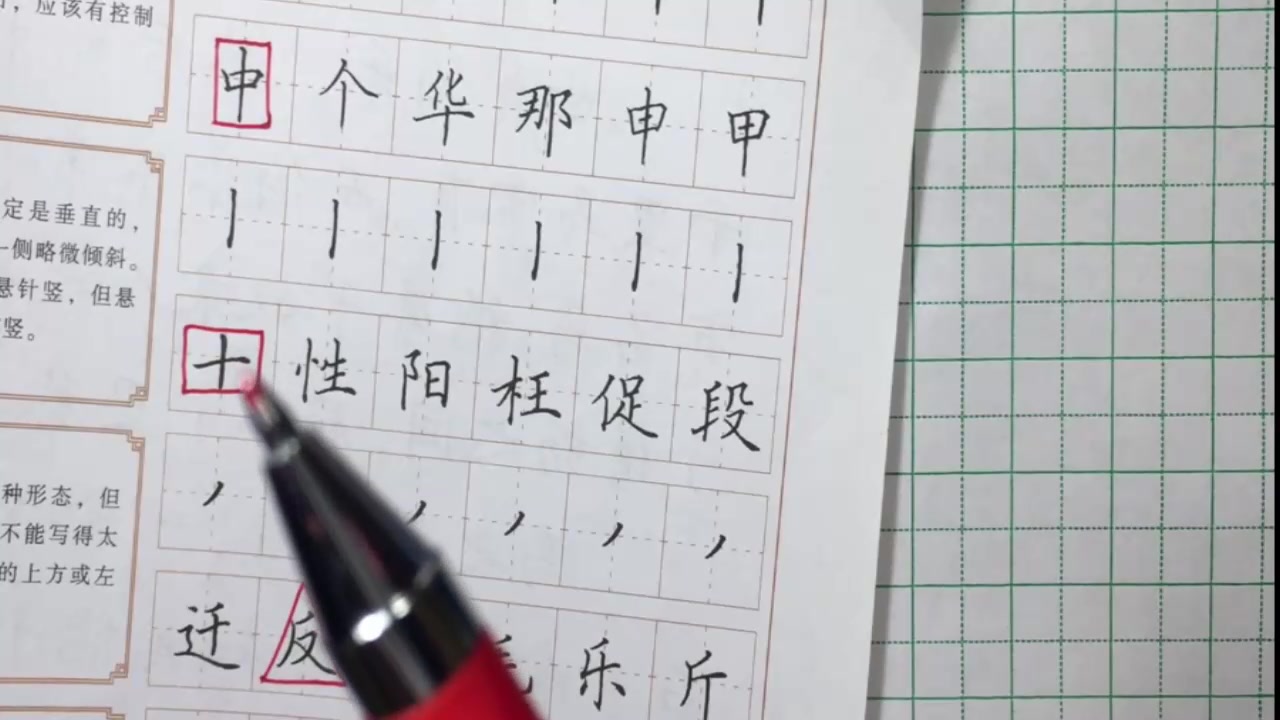 应该有控制
中个华那申甲
定是垂直的，
一侧略微倾斜。
悬针竖，但悬
竖。
十性阳枉促段
种形态，但
不能写得太
的上方或左
迁反乐斤